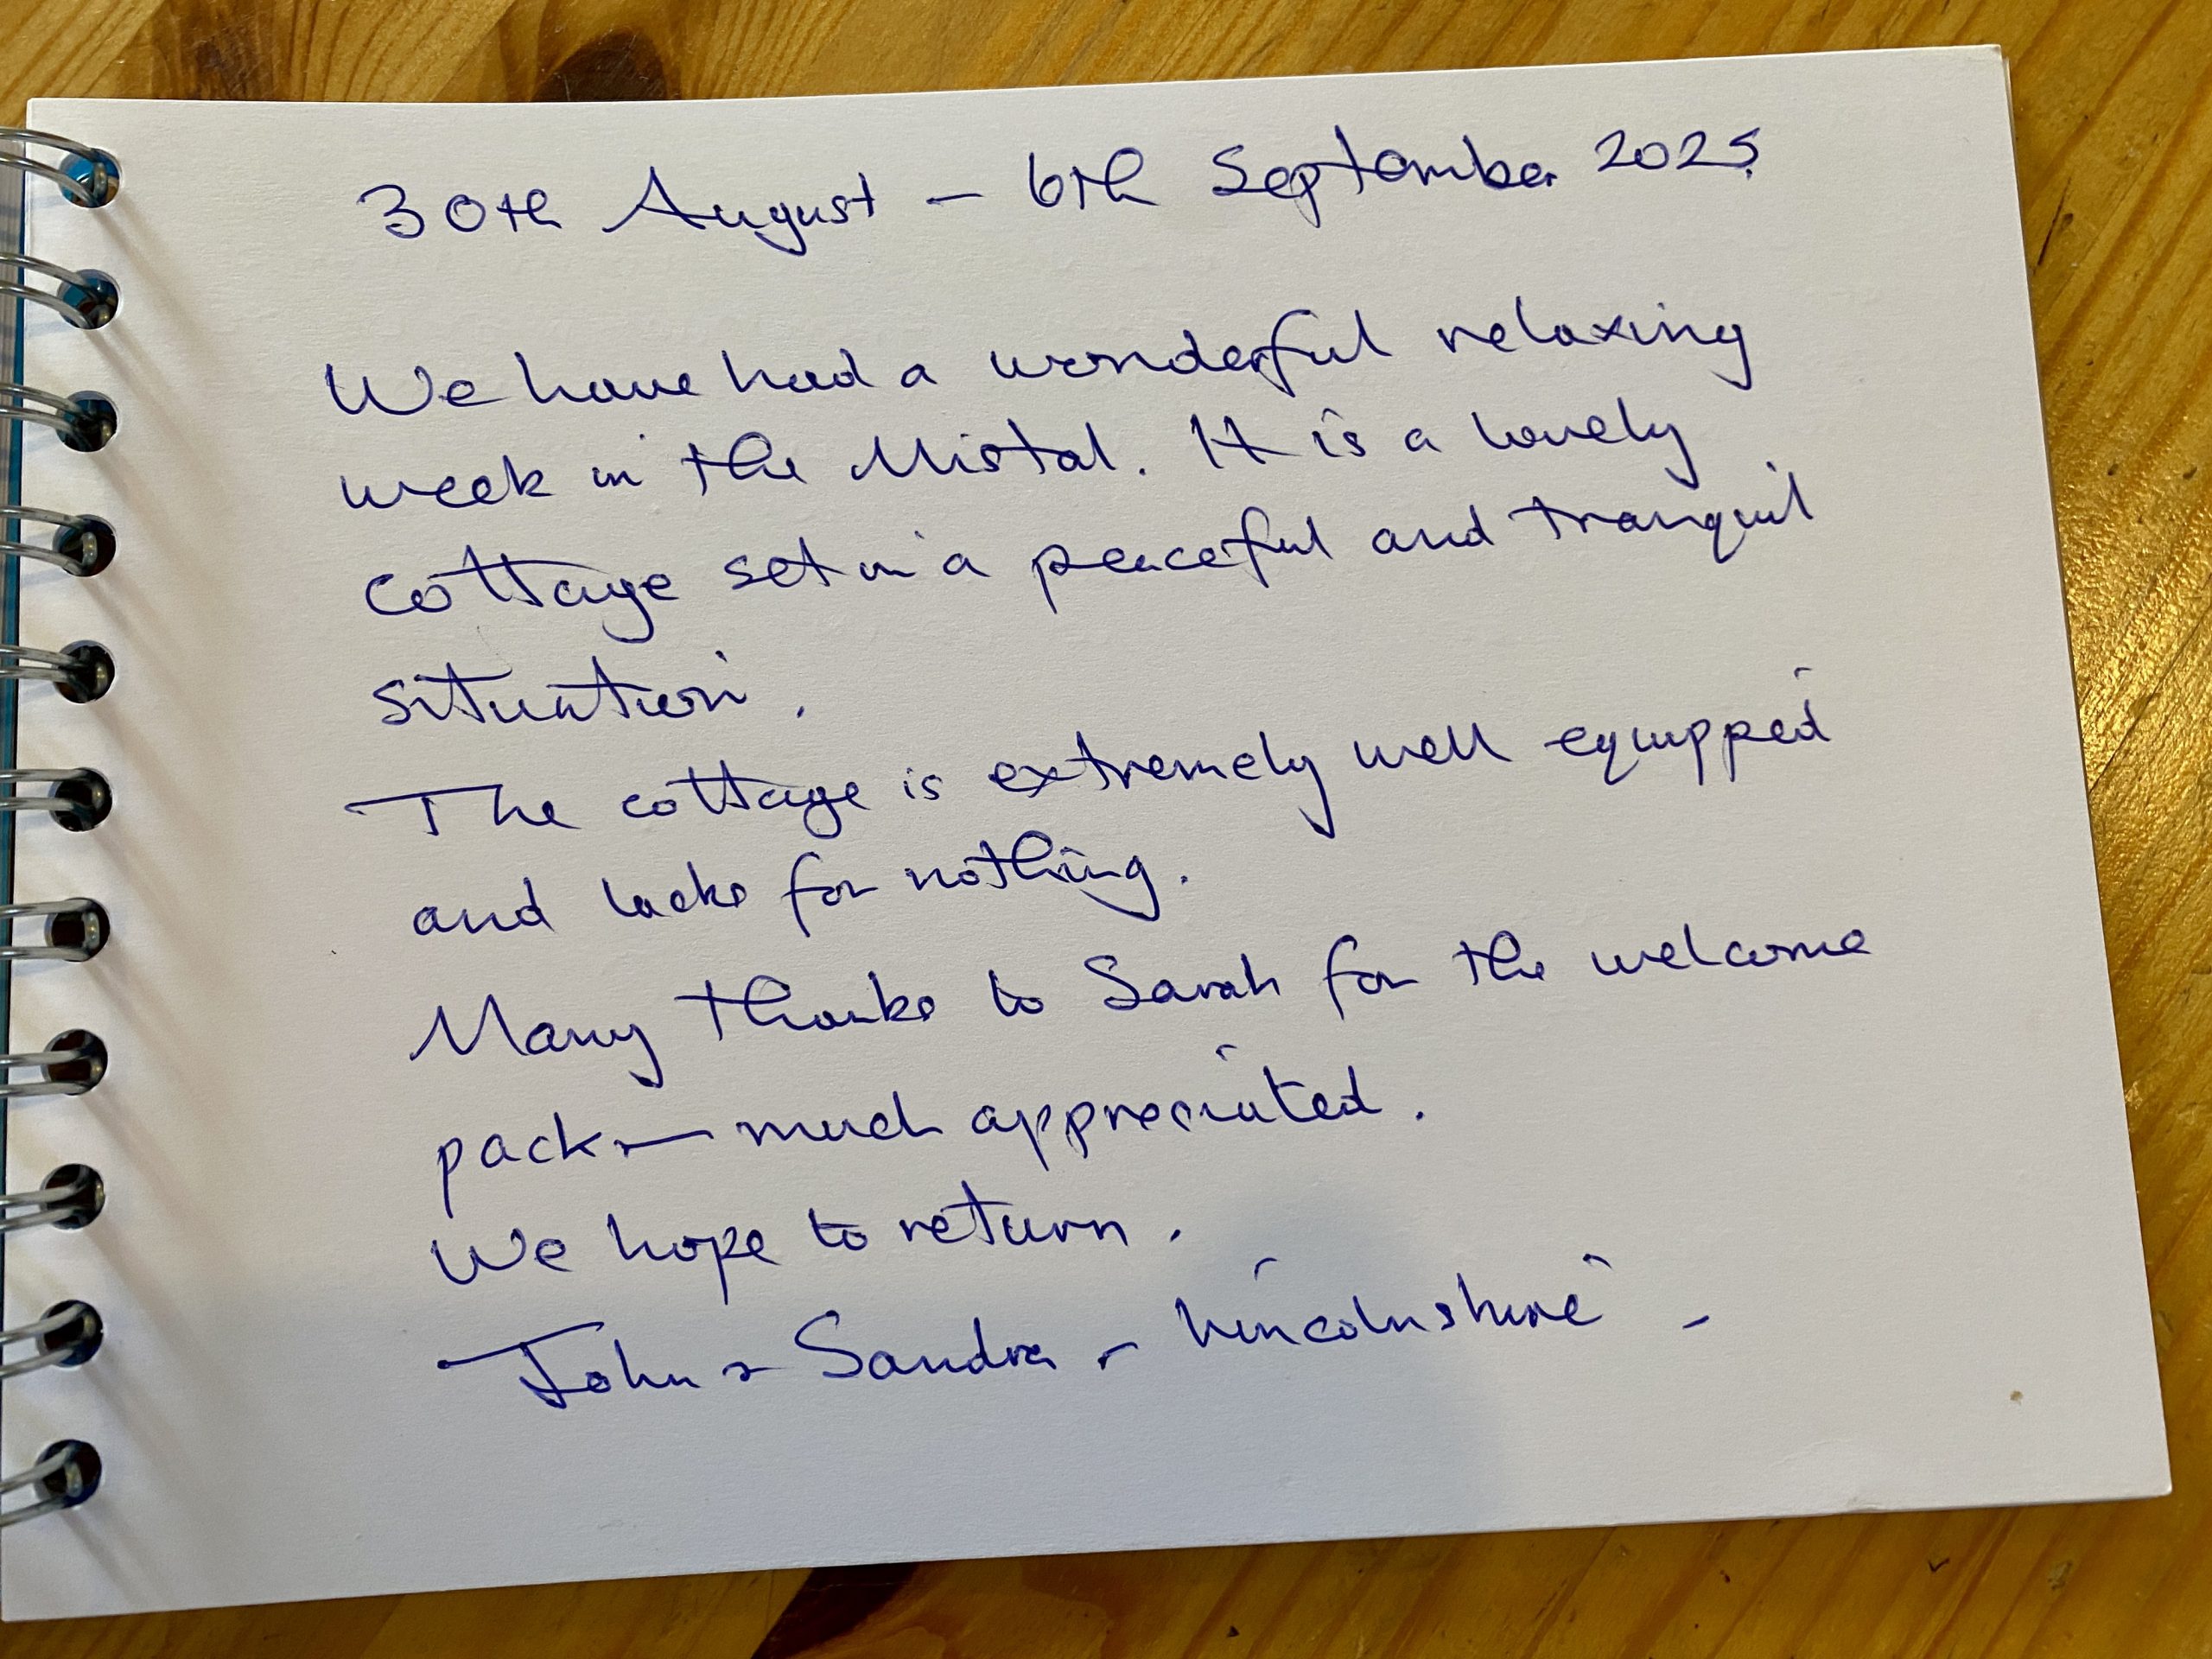 30th August - 6th September 2025
We have had a wonderful relaxing
week in the Mistal. It is a lovely
cottage set in a peaceful and tranquil
situation.
The cottage is extremely well equipped
and lacks for nothing.
Many thanks to Sarah for the welcome
pack - much appreciated.
We hope to return.
John & Sandra - Lincolnshire -